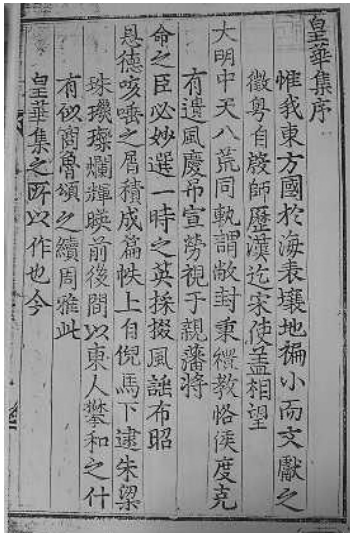 皇華集序
惟我東方國於海表壤地褊小而文獻之
徵粤自殷師歷漢迄宋使盖相望
大明中天八荒同軌謂敝封秉禮教恪侯度克
有遺風慶吊宣勞視于親藩將
命之臣必妙選一時之英採掇風謡布昭
恩德咳唾之屑積成篇帙上自倪馬下逮朱梁
珠璣璨爛輝暎前後間以東人攀和之什
有似商魯頌之續周雅此
皇華集之所以作也今